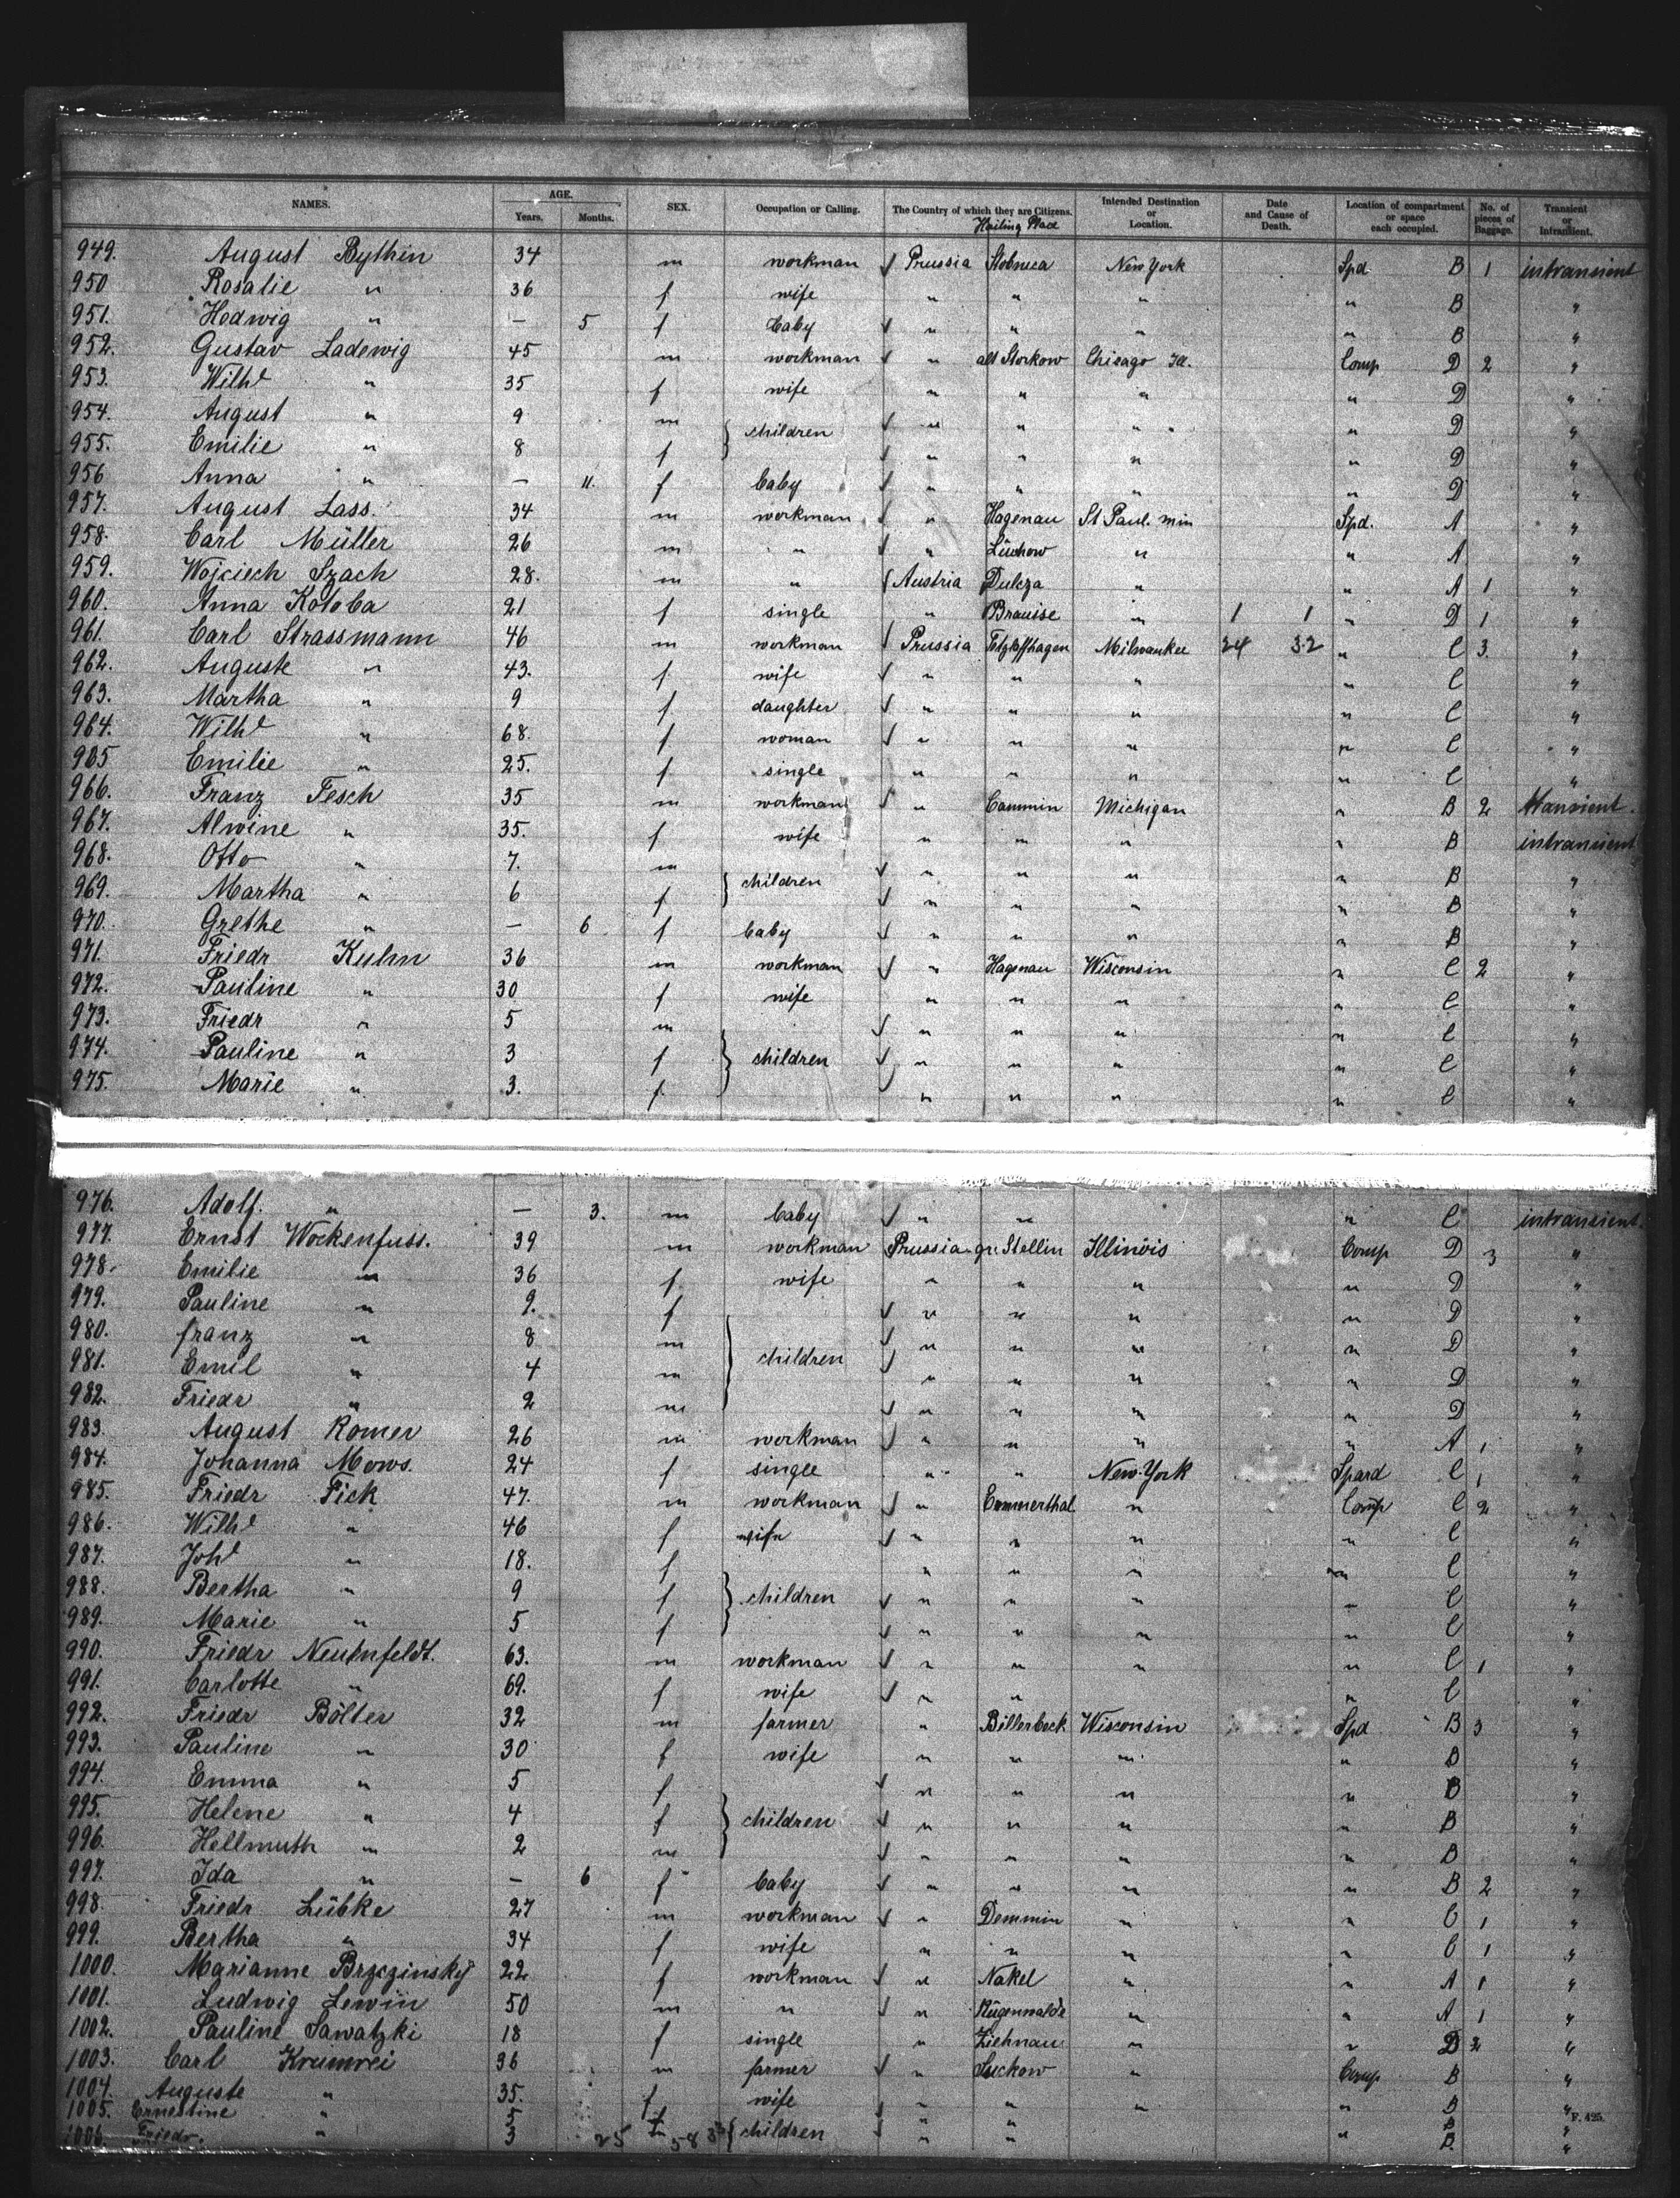 NAMES. AGE. Years. Months. SEX. Occupation or Calling. The Country of which they are Citizens. Hailing Place Intended Destination or Location. Date and Cause of Death. Location of compartment or space each occupied. No. of pieces of Baggage. Transient or Intransient.
949. August Bythin 34 m workman √ Prussia Stobnica New York Spd. B 1 intransient
950 Rosalie " 36 f wife " " " " B "
951. Hedwig " — 5 f baby √ " " " " B "
952. Gustav Ladewig 45 m workman √ " alt Storkow Chicago Ill. Comp D 2 "
953. Wilhe " 35 f wife " " " " D "
954. August " 9 m children √ " " " " D "
955. Emilie " 8 f √ " " " " D "
956 Anna " — 11. f baby √ " " " " D "
957. August Lass. 34 m workman √ " Hagenau St Paul. Min Spd. A "
958. Carl Müller 26 m " √ " Lüchow " " A "
959. Wojciech Szach 28. m " Austria Dulcza " " A 1 "
960. Anna Kotoba 21 f single " Brauise " 1 1 " D 1 "
961. Carl Strassmann 46 m workman √ Prussia Tetzlaffhagen Milwaukee 24 32 " C 3. "
962. Auguste " 43. f wife √ " " " " C "
963. Martha " 9 f daughter √ " " " " C "
964. Wilhe " 68. f woman √ " " " " C "
965 Emilie " 25. f single " " " " C "
966. Franz Tesch 35 m workman √ " Cammin Michigan " B 2 transient.
967. Alwine " 35. f wife " " " " B intransient
968. Otto " 7. m children √ " " " " B "
969. Martha " 6 f √ " " " " B "
970. Grethe " — 6 f baby √ " " " " B "
971. Friedr Kuhn 36 m workman √ " Hagenau Wisconsin " C 2 "
972. Pauline " 30 f wife " " " " C "
973. Friedr " 5 m √ " " " " C "
974. Pauline " 3 f children √ " " " " C "
975. Marie " 3. f √ " " " " C "
976. Adolf. " — 3. m baby √ " " " C intransient.
977. Ernst Wockenfuss. 39 m workman Prussia gr. Stellin Illinois Comp D 3 "
978. Emilie " 36 f wife " " " " D "
979. Pauline " 9. f √ " " " " D "
980. Franz " 8 m √ " " " " D "
981. Emil " 4 m children √ " " " " D "
982. Friedr " 2 m √ " " " " D "
983. August Romer 26 m workman √ " " " " A 1 "
984. Johanna Mows. 24 f single " " New-York Spard C 1 "
985. Friedr Fick 47. m workman √ " Emmerthal " Comp C 2 "
986. Wilhe " 46 f wife √ " " " " C "
987. Johe " 18. f " " " " C "
988. Bertha " 9 f children √ " " " " C "
989. Marie " 5 f √ " " " " C "
990. Friedr Neuhnfeldt. 63. m workman √ " " " " C 1 "
991. Carlotte " 69. f wife √ " " " C "
992. Friedr Bölter 32 m farmer " Billerbeck Wisconsin Spd B 3 "
993. Pauline " 30 f wife " " " " B "
994. Emma " 5 f √ " " " " B "
995. Helene " 4 f children √ " " " " B "
996. Hellmuth " 2 m √ " " " " B "
997. Ida " — 6 f baby √ " " " " B 2 "
998. Friedr Lübke 27 m workman √ " Demmin " " C 1 "
999. Bertha " 34 f wife " " " " C 1 "
1000. Marianne Brzezinsky 22 f workman √ " Nakel " " A 1 "
1001. Ludwig Lewin 50 m " √ " Rügenwalde " " A 1 "
1002. Pauline Sawatzki 18 f single " Ziehnau " " D 2 "
1003. Carl Krumrei 36 m farmer √ " Suckow " Comp B "
1004. Auguste " 35. f wife " " " " B "
1005. Ernestine " 5 f children " " B "
1006. Friedr. " 3 25 58 33 " " " B. "
F. 425.